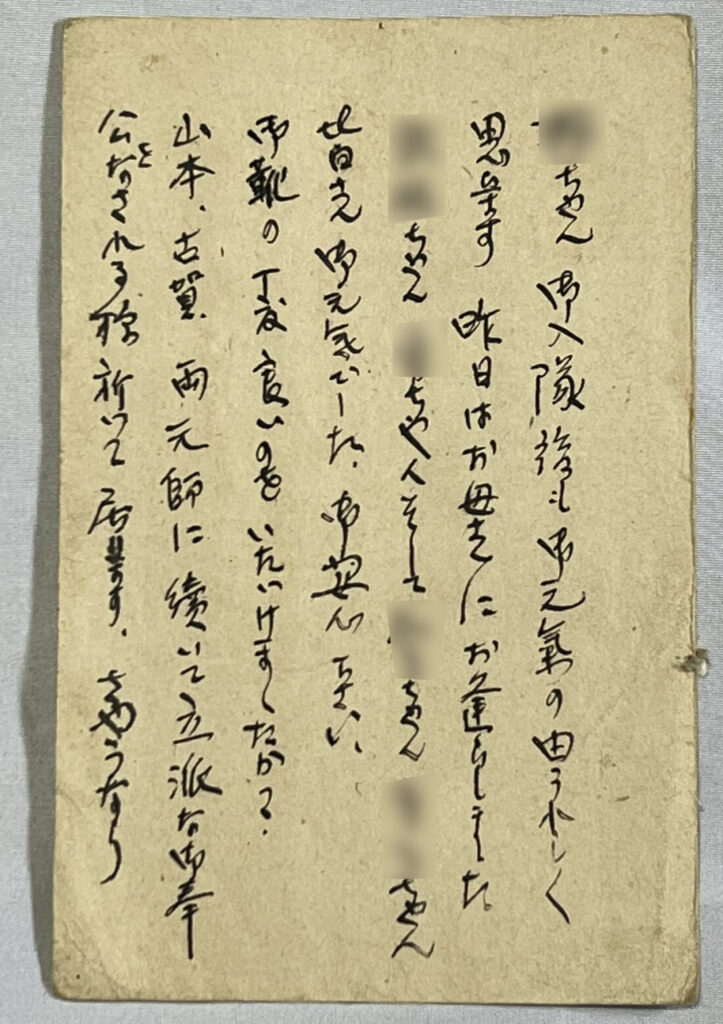 ちやん 御入隊後も御元氣の由うれしく
思ひます 昨日はお母さんにお逢ひしました。
ちやん ちやんそして ちやん ちやん
皆さん御元気でした、御安心下さい、
御靴の丁度良いのをいただけましたか?
山本、古賀、両元師に續いて立派な御奉
公をなされる様祈つて居ます、さやうなら